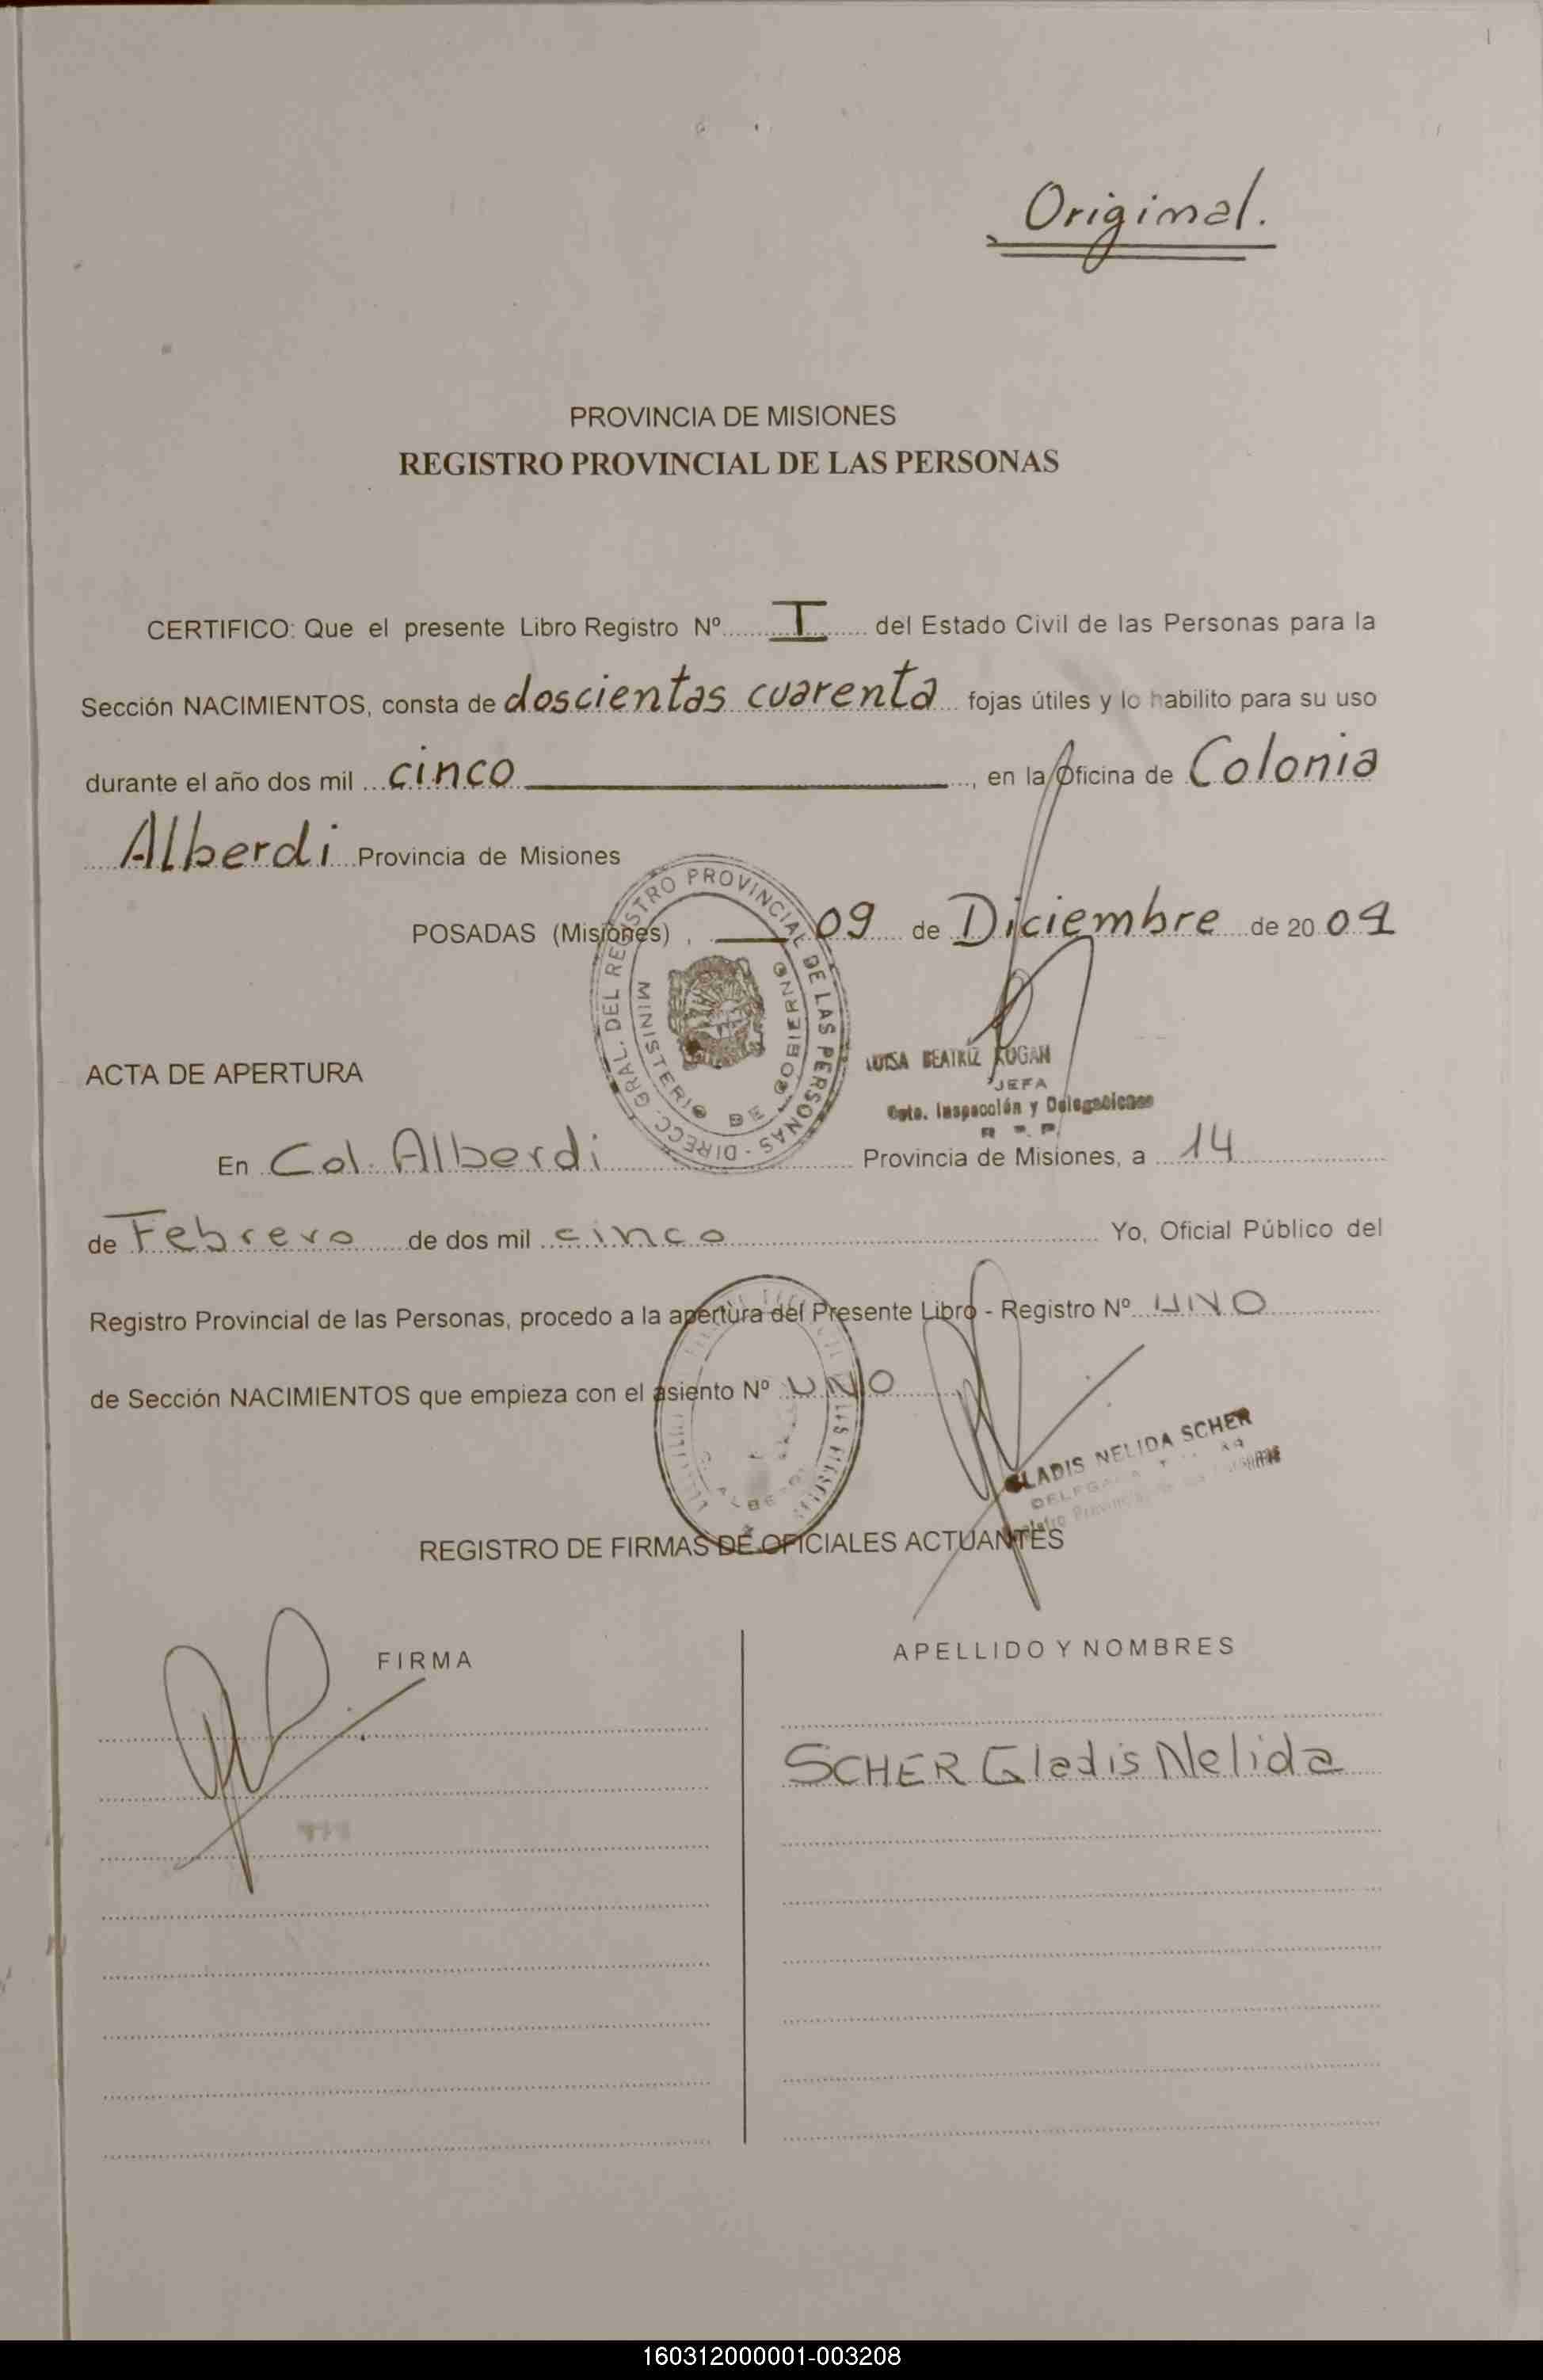 Original.
PROVINCIA DE MISIONES
REGISTRO PROVINCIAL DE LAS PERSONAS
CERTIFICO: Que el presente Libro Registro Nº I del Estado Civil de las Personas para la
Sección NACIMIENTOS, consta de doscientas cuarenta fojas útiles y lo habilito para su uso
durante el año dos mil cinco, en la Oficina de Colonia
Alberdi Provincia de Misiones
POSADAS (Misiones), 09 de Diciembre de 2004
DIRECC. GRAL. DEL REGISTRO PROVINCIAL DE LAS PERSONAS
MINISTERIO DE GOBIERNO
LUISA BEATRIZ KOGAN
JEFA
Dpto. Inspección y Delegaciones
R. P. P.
ACTA DE APERTURA
En Col. Alberdi Provincia de Misiones, a 14
de Febrero de dos mil cinco Yo, Oficial Público del
Registro Provincial de las Personas, procedo a la apertura del Presente Libro - Registro Nº UNO
de Sección NACIMIENTOS que empieza con el asiento Nº UNO
GLADIS NELIDA SCHER
REGISTRO DE FIRMAS DE OFICIALES ACTUANTES
FIRMA
APELLIDO Y NOMBRES
SCHER Gladis Nelida
160312000001-003208